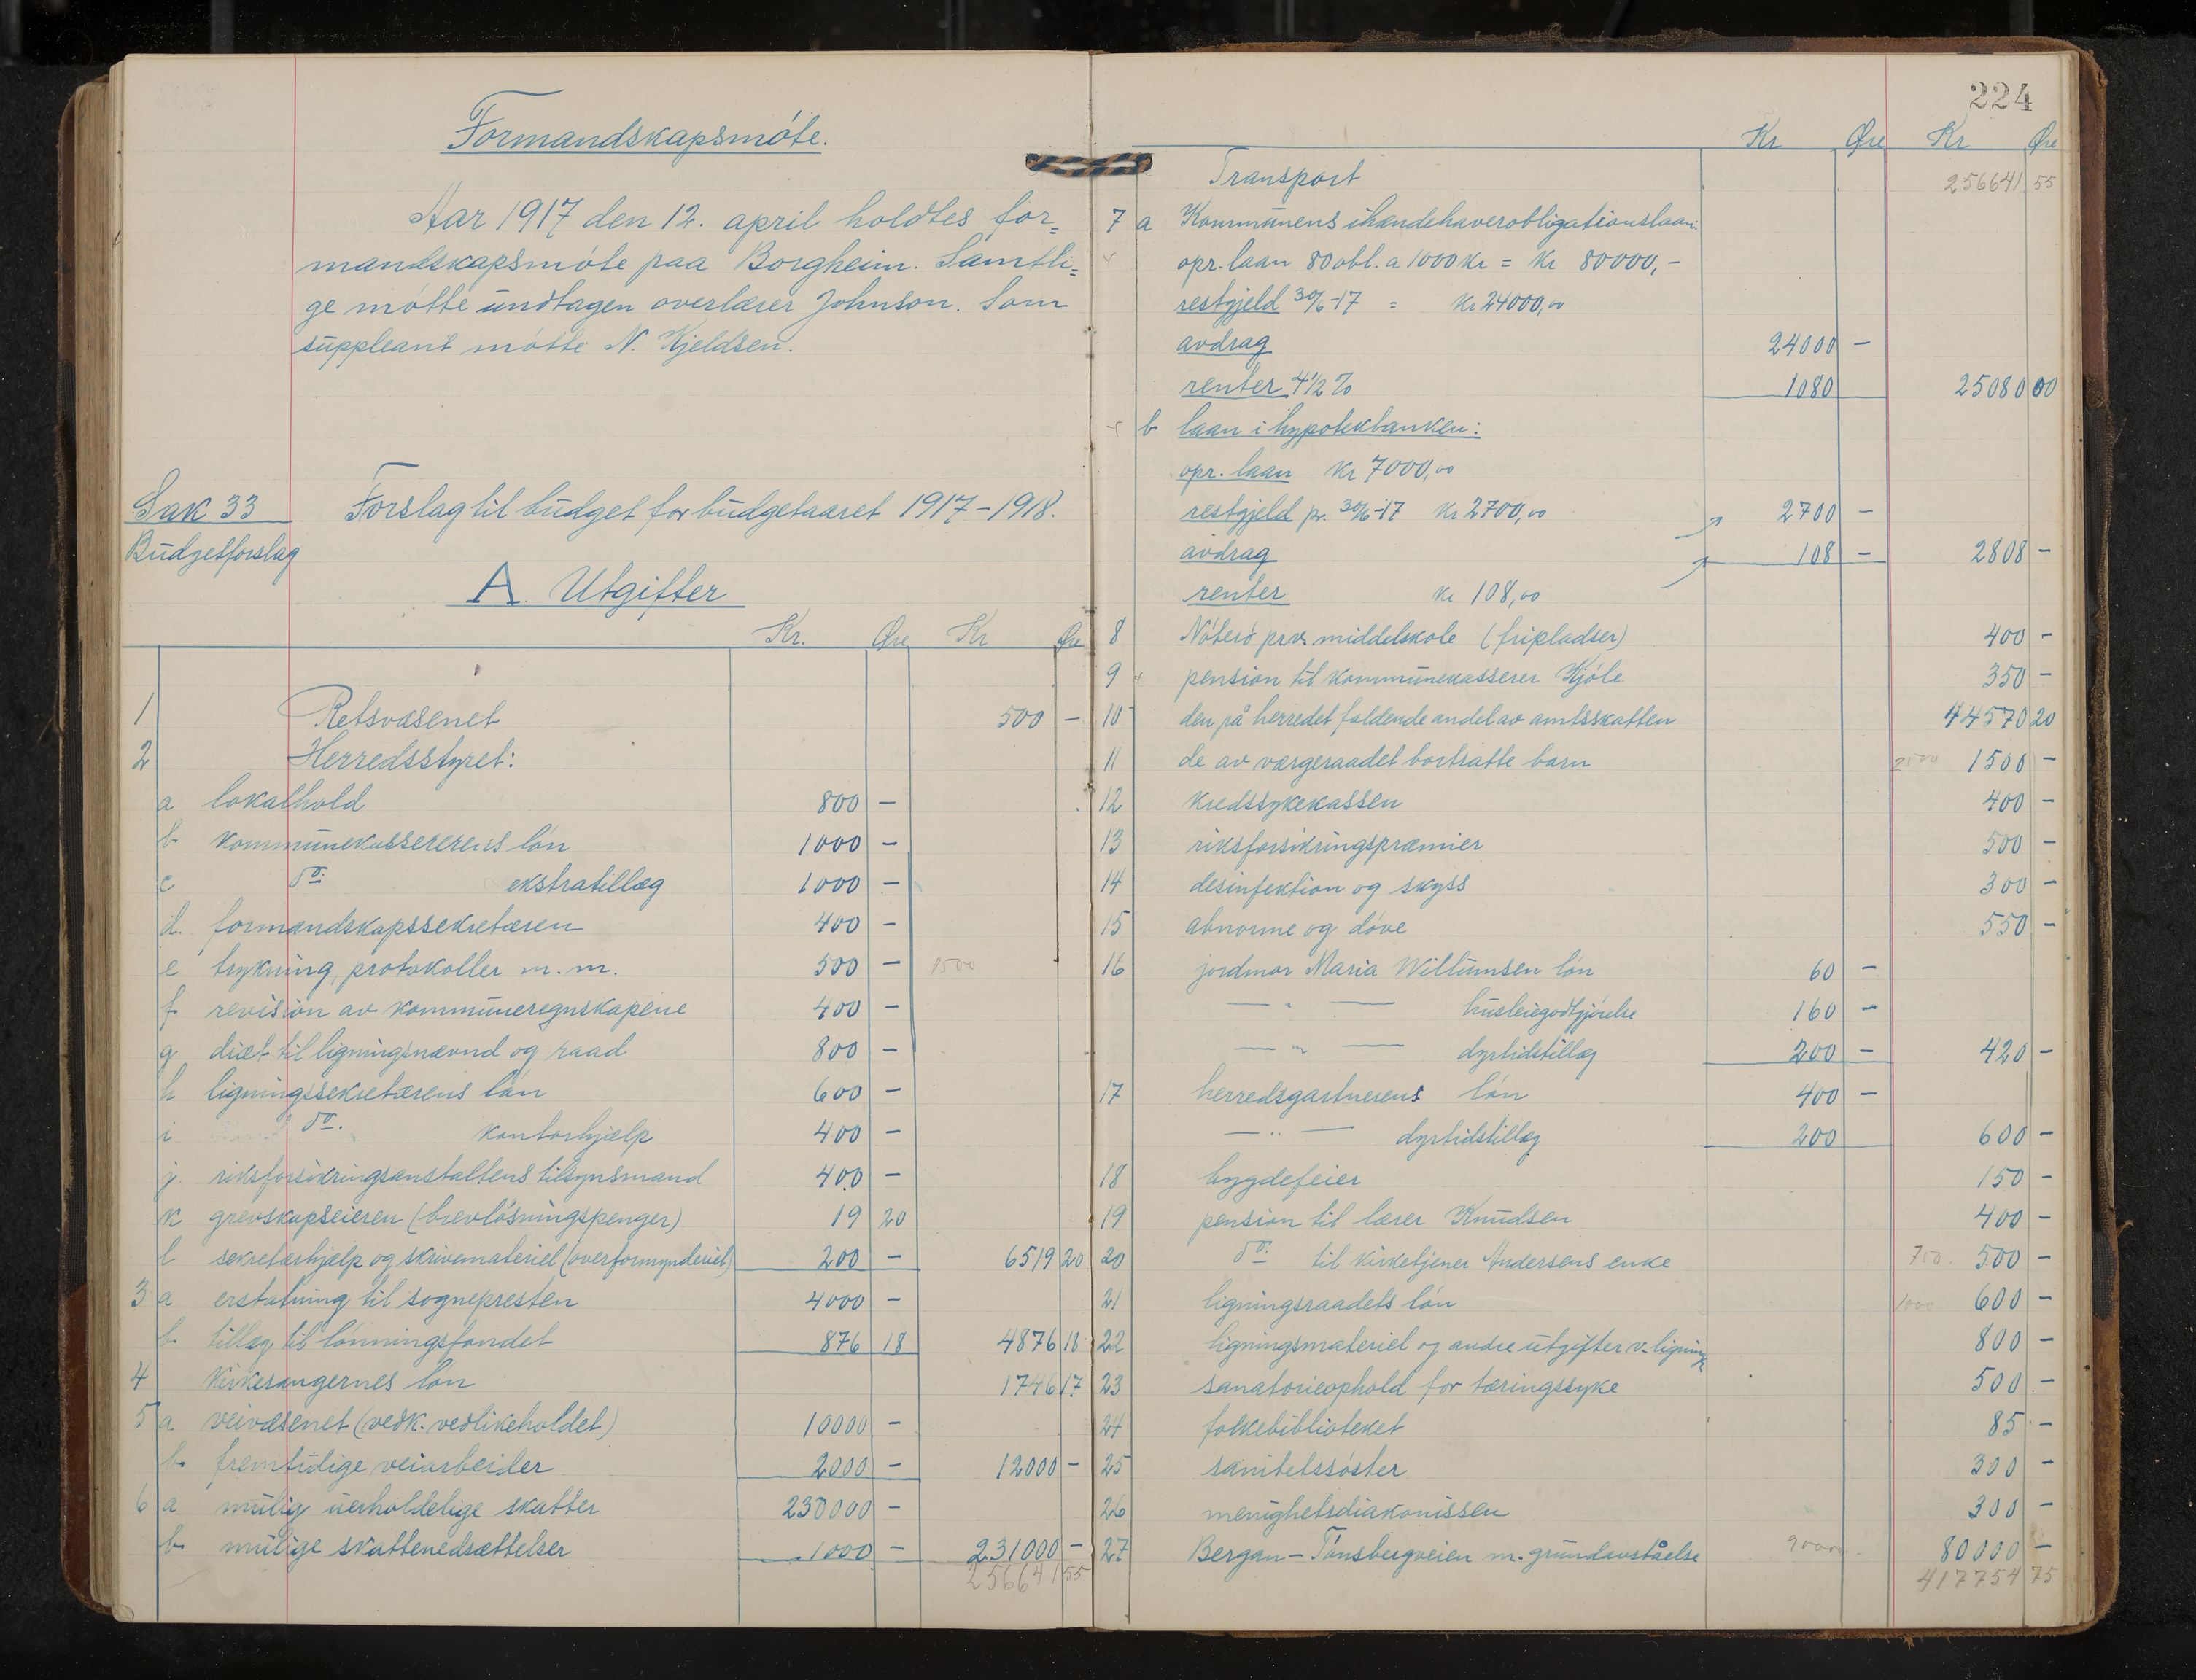 Formandskapsmöte.
Aar 1917 den 12. april holdtes for=
mandskapsmöte paa Borgheim. Samtli=
ge mötte undtagen overlærer Johnson. Som
suppleant mötte N. Kjeldsen.
Sak 33
Budgetforslag
Forslag til budget for budgetaaret 1917-1918.
A. Utgifter
Kr. Øre Kr Øre
1 Retsvæsenet 500 -
2 Herredsstyret:
a lokalhold 800 -
b kommunekassererens lön 1000 -
c do. ekstratillæg 1000 -
d. formandskapssekretæren 400 -
e trykning, protokoller m.m. 500 - 1500
f revision av kommuneregnskapene 400 -
g diæt til ligningsnævnd og raad 800 -
h ligningssekretærens lön 600 -
i do. kontorhjælp 400 -
j. riksforsikringsanstaltens tilsynsmand 400 -
k grevskapseieren (brevlösningspenger) 19 20
l sekretærhjælp og skrivemateriel (overformynderiet) 200 - 6519 20
3 a erstatning til sognepresten 4000 -
b tillæg til lönningsfondet 876 18 4876 18
4 Kirkesangernes lön 1746 17
5 a veivæsenet (vedk. vedlikeholdet) 10000 -
b fremtidige veiarbeider 2000 - 12000 -
6 a mulig uerholdelige skatter 230000 -
b mulige skattenedsættelser 1000 - 231000 -
256641 55
224
Kr Øre Kr Øre
Transport 256641 55
7 a Kommunens ihændehaverobligationslaan:
opr. laan 80 obl. a 1000 kr = kr 80000,-
restgjeld 30/6-17 = kr 24000,00
avdrag 24000 -
renter 4 1/2 % 1080 25080 00
b laan i hypotekbanken:
opr. laan kr 7000,00
restgjeld pr. 30/6-17 kr 2700,00 2700 -
avdrag 108 - 2808 -
renter kr 108,00
8 Nöterö priv. middelskole (fripladser) 400 -
9 pension til kommunekasserer Kjöle 350 -
10 den på herredet faldende andel av amtsskatten 44570 20
11 de av værgeraadet bortsatte barn 2500 1500 -
12 kredssykekassen 400 -
13 riksforsikringspræmier 500 -
14 desinfektion og skyss 300 -
15 abnorme og döve 550 -
16 jordmor Maria Willumsen lön 60 -
— " — husleiegodtgjörelse 160 -
— " — dyrtidstillæg 200 - 420 -
17 herredsgartnerens lön 400 -
— " — dyrtidstillæg 200 600 -
18 bygdefeier 150 -
19 pension til lærer Knudsen 400 -
20 do. til kirketjener Andersens enke 750. 500 -
21 ligningsraadets lön 1000 600 -
22 ligningsmateriel og andre utgifter v. ligning 800 -
23 sanatorieophold for tæringssyke 500 -
24 folkebiblioteket 85 -
25 sanitetssöster 300 -
26 menighetsdiakonissen 300 -
27 Bergan - Tönsbergveien m. grundavståelse 90000 80000 -
417754 75